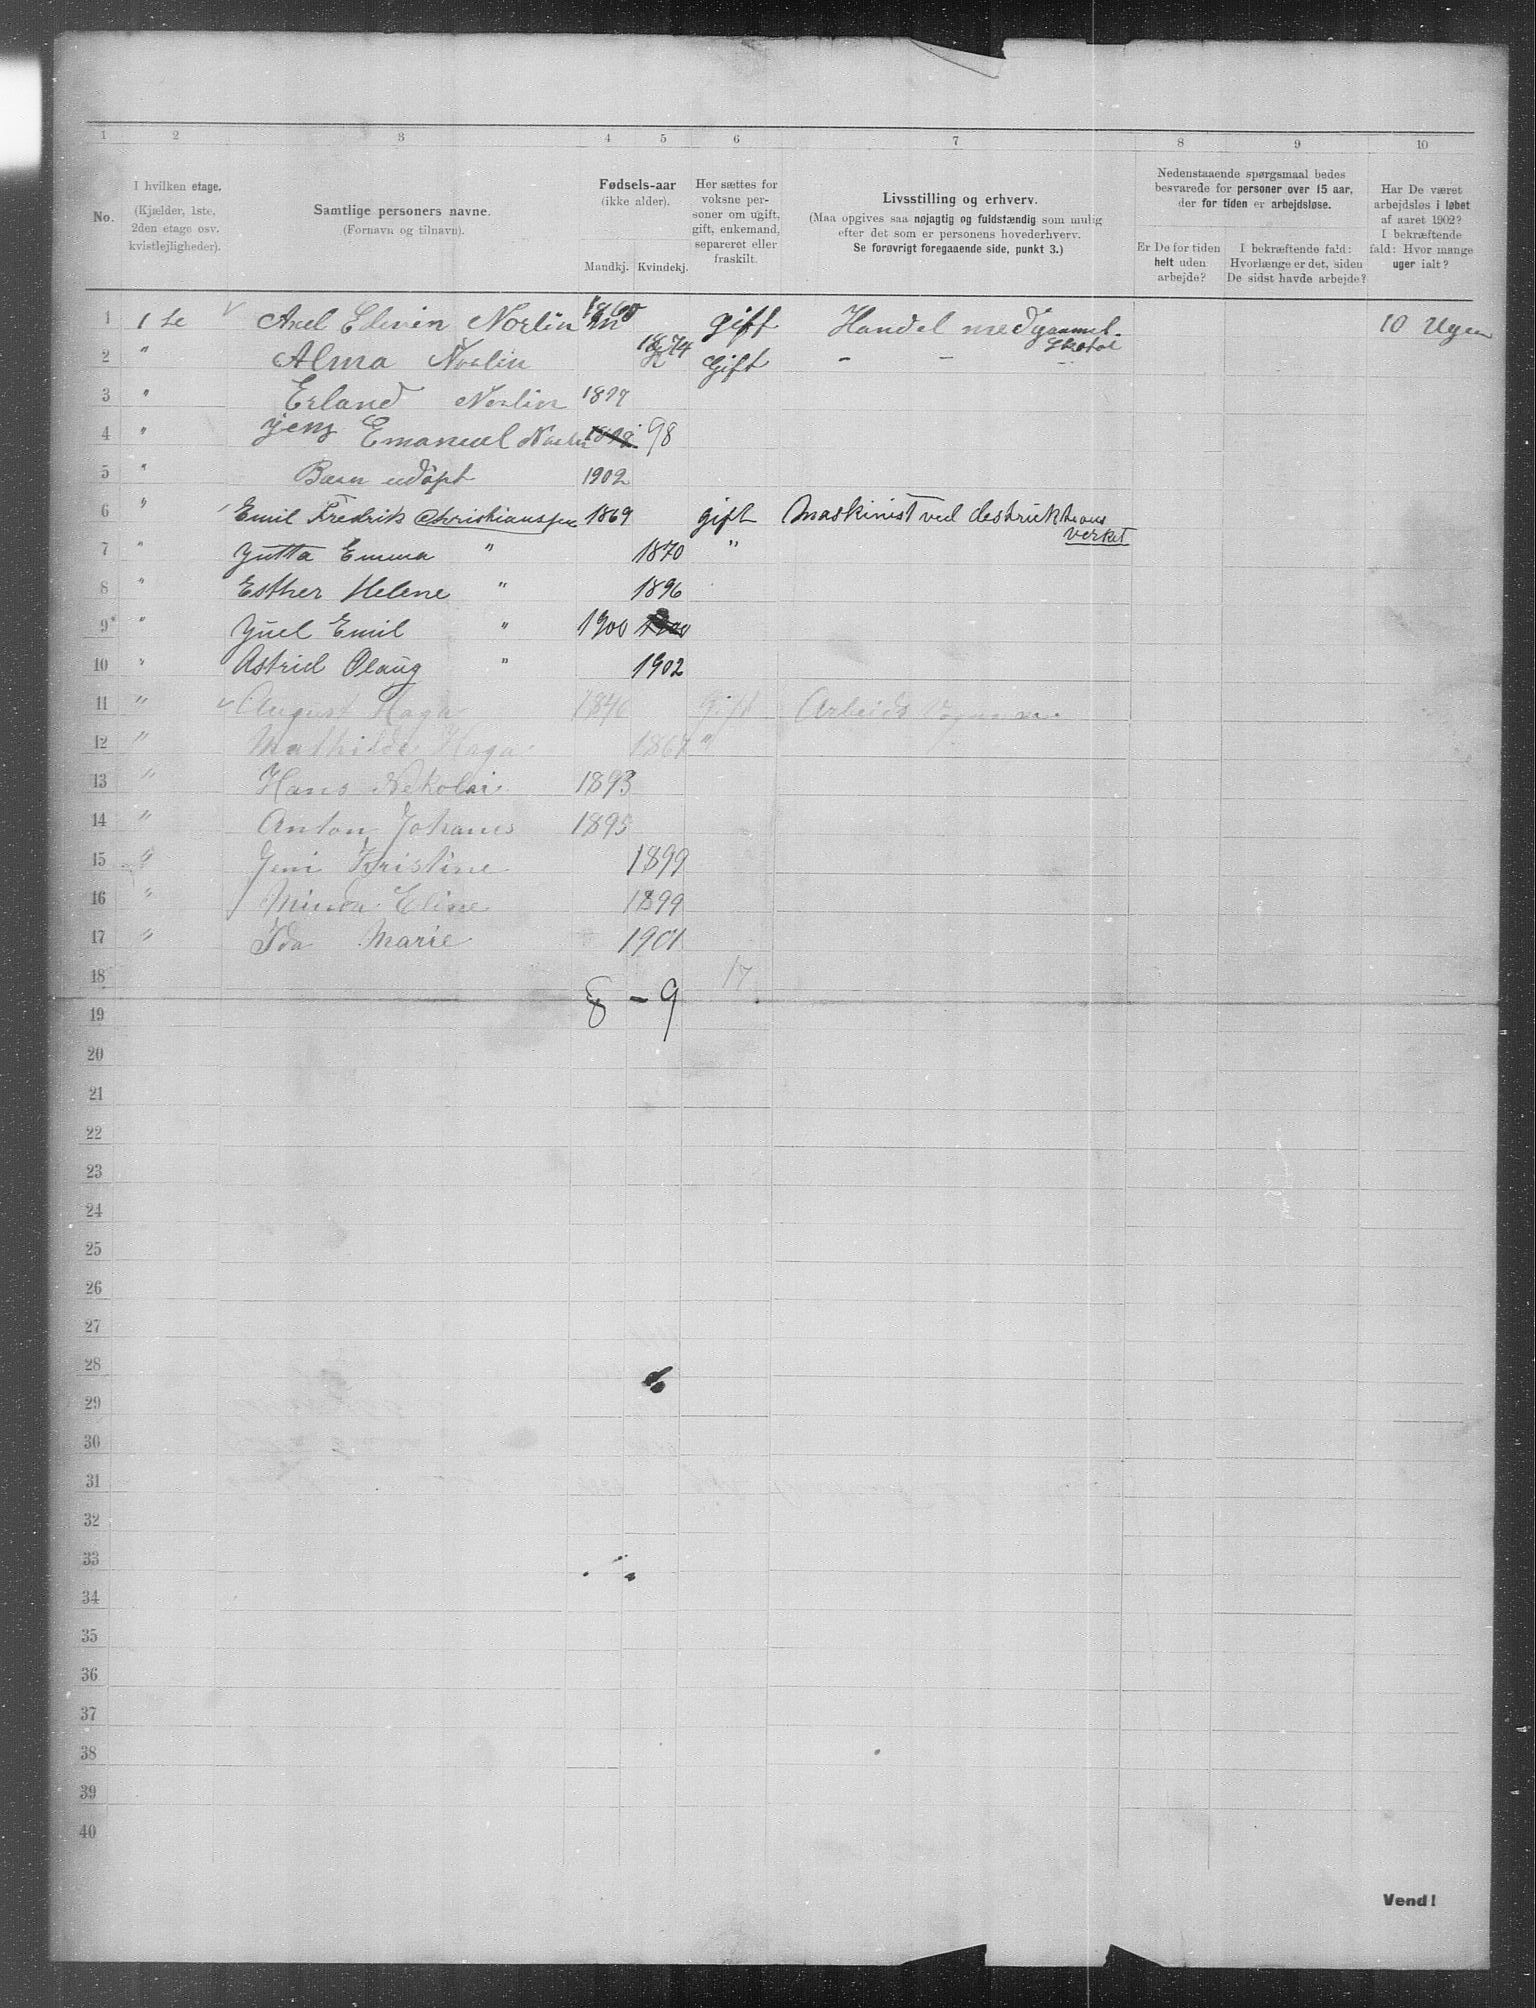 1 2 3 4 5 6 7 8 9 10
No.
I hvilken etage.
(Kjælder, 1ste,
2den etage osv.
kvistlejligheder).
Samtlige personers navne.
(Fornavn og tilnavn).
Fødsels-aar
(ikke alder).
Mandkj. Kvindekj.
Her sættes for
voksne per-
soner om ugift,
gift, enkemand,
separeret eller
fraskilt.
Livsstilling og erhverv.
(Maa opgives saa nøjagtig og fuldstændig som mulig
efter det som er personens hovederhverv.
Se forøvrigt foregaaende side, punkt 3.)
Nedenstaaende spørgsmaal bedes
besvarede for personer over 15 aar,
der for tiden er arbejdsløse.
Er De for tiden
helt uden
arbejde?
I bekræftende fald:
Hvorlænge er det, siden
De sidst havde arbejde?
Har De været
arbejdsløs i løbet
af aaret 1902?
I bekræftende
fald: Hvor mange
uger ialt?
1 1 ste Axel Edvin Norlin 1860 gift Handel med gammel 10 Uger
2 " Alma Norlin 1874 Gift - - -
3 " Erland Norlin 1897
4 " Jens Emanuel Norlin 1898 98
5 " Barn udöpt 1902
6 " Emil Fredrik Christianssen 1869 gift Maskinist ved destruktions
verket
7 " Jutta Emma " 1870 "
8 " Esther Helene " 1896
9 " Juel Emil " 1900 1900
10 " Astrid Olaug " 1902
11 " August Haga 1840 Gift Arbeids
12 " Mathilde Haga 1867 "
13 " Hans Nekolai 1893
14 " Anton Johanes 1895
15 " Jeni Kristine 1899
16 " Minda Eline 1899
17 " Ida Marie 1901
18 17
8 - 9
19
20
21
22
23
24
25
26
27
28
29
30
31
32
33
34
35
36
37
38
39
40
Vend!